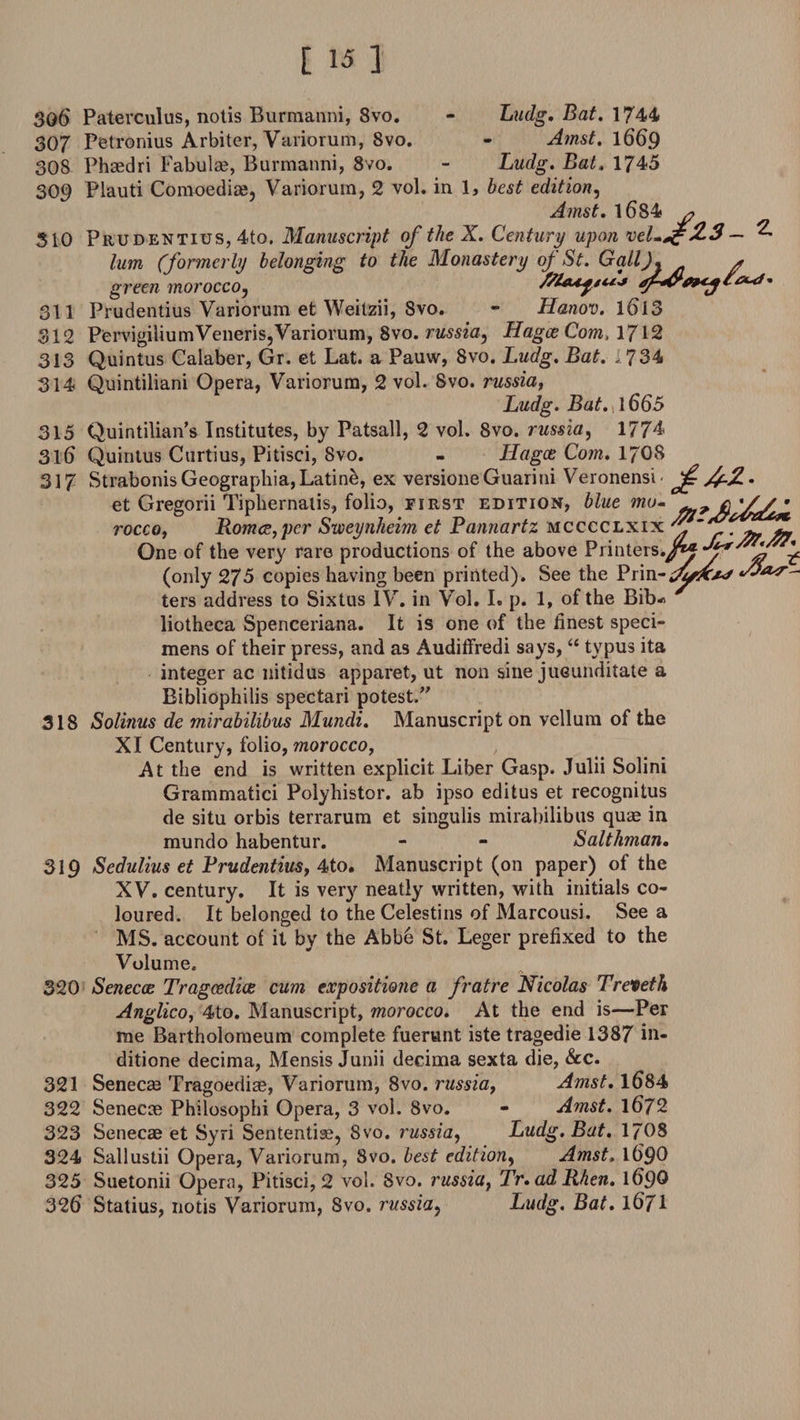 [ 15 ]
306 Paterculus, notis Burmanni, 8vo. - Ludg. Bat. 1744
307 Petronius Arbiter, Variorum, 8vo. - Amst. 1669
308 Phædri Fabulæ, Burmanni, 8vo. - Ludg. Bat. 1745
309 Plauti Comoediæ, Variorum, 2 vol. in 1, best edition,
Amst. 1684
310 PRUDENTIUS, 4to. Manuscript of the X. Century upon vel- £23 – 2
lum (formerly belonging to the Monastery of St. Gall),
green morocco, Marquis of Douglas.
311 Prudentius Variorum et Weitzii, 8vo. - Hanov. 1613
312 Pervigilium Veneris, Variorum, 8vo. russia, Hagæ Com, 1712
313 Quintus Calaber, Gr. et Lat. a Pauw, 8vo. Ludg. Bat. 1734
314 Quintiliani Opera, Variorum, 2 vol. 8vo. russia,
Ludg. Bat. 1665
315 Quintilian's Institutes, by Patsall, 2 vol. 8vo. russia, 1774
316 Quintus Curtius, Pitisci, 8vo. - Hagæ Com. 1708
317 Strabonis Geographia, Latinè, ex versione Guarini Veronensi £ 42.
et Gregorii Tiphernatis, folio, FIRST EDITION, blue mo-
rocco, Romæ, per Sweynheim et Pannartz MCCCCLXIX Mr. Dibdin
One of the very rare productions of the above Printers, for Sir M. M.
(only 275 copies having been printed). See the Prin- Sykes Bart
ters address to Sixtus IV. in Vol. I. p. 1, of the Bib-
liotheca Spenceriana. It is one of the finest speci-
mens of their press, and as Audiffredi says, “ typus ita
integer ac nitidus apparet, ut non sine jueunditate a
Bibliophilis spectari potest.”
318 Solinus de mirabilibus Mundi. Manuscript on vellum of the
XI Century, folio, morocco,
At the end is written explicit Liber Gasp. Julii Solini
Grammatici Polyhistor. ab ipso editus et recognitus
de situ orbis terrarum et singulis mirabilibus quæ in
mundo habentur. - - Salthman.
319 Sedulius et Prudentius, 4to. Manuscript (on paper) of the
XV. century. It is very neatly written, with initials co-
loured. It belonged to the Celestins of Marcousi. See a
MS. account of it by the Abbé St. Leger prefixed to the
Volume.
320 Senecæ Tragœdiæ cum expositione a fratre Nicolas Treveth
Anglico, 4to. Manuscript, morocco. At the end is—Per
me Bartholomeum complete fuerunt iste tragedie 1387 in-
ditione decima, Mensis Junii decima sexta die, &c.
321 Senecæ Tragoediæ, Variorum, 8vo. russia, Amst. 1684
322 Senecæ Philosophi Opera, 3 vol. 8vo. - Amst. 1672
323 Senecæ et Syri Sententiæ, 8vo. russia, Ludg. Bat. 1708
324 Sallustii Opera, Variorum, 8vo. best edition, Amst. 1690
325 Suetonii Opera, Pitisci, 2 vol. 8vo. russia, Tr. ad Rhen. 1690
326 Statius, notis Variorum, 8vo. russia, Ludg. Bat. 1671